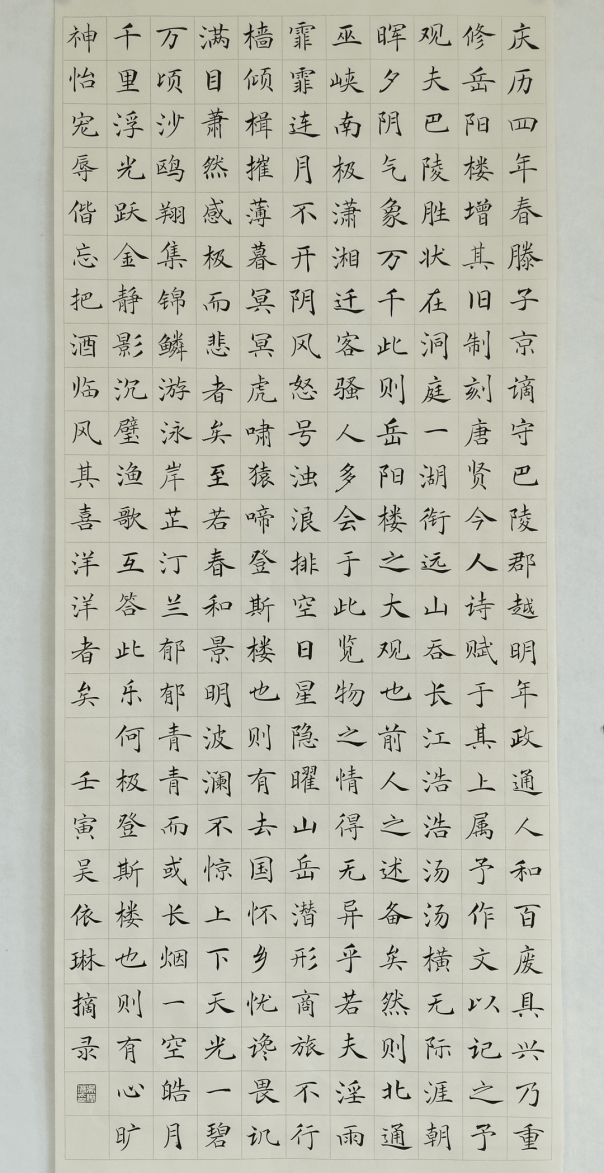 庆历四年春滕子京谪守巴陵郡越明年政通人和百废具兴乃重
修岳阳楼增其旧制刻唐贤今人诗赋于其上属予作文以记之予
观夫巴陵胜状在洞庭一湖衔远山吞长江浩浩汤汤横无际涯朝
晖夕阴气象万千此则岳阳楼之大观也前人之述备矣然则北通
巫峡南极潇湘迁客骚人多会于此览物之情得无异乎若夫淫雨
霏霏连月不开阴风怒号浊浪排空日星隐曜山岳潜形商旅不行
樯倾楫摧薄暮冥冥虎啸猿啼登斯楼也则有去国怀乡忧谗畏讥
满目萧然感极而悲者矣至若春和景明波澜不惊上下天光一碧
万顷沙鸥翔集锦鳞游泳岸芷汀兰郁郁青青而或长烟一空皓月
千里浮光跃金静影沉璧渔歌互答此乐何极登斯楼也则有心旷
神怡宠辱偕忘把酒临风其喜洋洋者矣 壬寅吴依琳摘录